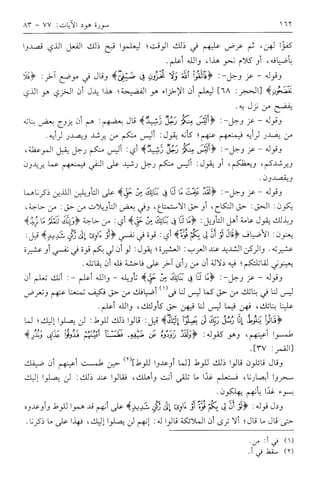 ١٦٢ سورة هود الآيات: ٧٧ - ٨٣
كفؤًا لهن، ثم عرض عليهم في ذلك الوقت؛ ليعلموا قبح ذلك الفعل الذي قصدوا
بأضيافه، أو كلام نحو هذا، والله أعلم.
وقوله - عز وجل-: ﴿فَاتَّقُوا اللَّهَ وَلَا تُخْزُونِ فِي ضَيْفِي﴾ وقال في موضع آخر: ﴿فَلَا
تَفْضَحُونِ﴾ [الحجر: ٦٨] ليعلم أن الإخزاء هو الفضيحة؛ هذا يدل أن الخزي هو الذي
يفضح من نزل به.
وقوله - عز وجل-: ﴿أَلَيْسَ مِنكُمْ رَجُلٌ رَّشِيدٌ﴾ قال بعضهم: هم أن يزوج بعض بناته
من يصدر لرأيه فيمنعهم عنهم؛ كأنه يقول: أليس منكم من يرشد ويصدر لرأيه.
وقوله - عز وجل -: ﴿أَلَيْسَ مِنكُمْ رَجُلٌ رَّشِيدٌ﴾ أي: أليس منكم رجل يقبل الموعظة،
ويرشدكم، ويعظكم، أو يقول: أليس منكم رجل رشيد على النفي فيمنعهم عما يريدون
ويقصدون.
وقوله - عز وجل-: ﴿لَقَدْ عَلِمْتَ مَا لَنَا فِي بَنَاتِكَ مِنْ حَقٍّ﴾ على التأويلين اللذين ذكرناهما
يكون: الحق: حق النكاح، أو حق الاستمتاع، وفي بعض التأويلات من حق: من حاجة،
وبذلك يقول عامة أهل التأويل: ﴿مَا لَنَا فِي بَنَاتِكَ مِنْ حَقٍّ﴾ أي: من حاجة ﴿وَإِنَّكَ لَتَعْلَمُ مَا نُرِيدُ﴾
يعنون: الأضياف ﴿قَالَ لَوْ أَنَّ لِي بِكُمْ قُوَّةً﴾ أي: قوة في نفسي ﴿أَوْ آوِي إِلَى رُكْنٍ شَدِيدٍ﴾ قيل:
عشيرته. والركن الشديد عند العرب: العشيرة؛ يقول: لو أن لي بكم قوة في نفسي أو عشيرة
يعينوني لقاتلتكم؛ فيه دلالة أن من رأى آخر على فاحشة فله أن يقاتله.
وقوله - عز وجل-: ﴿مَا لَنَا فِي بَنَاتِكَ مِنْ حَقٍّ﴾ تأويله - والله أعلم -: أنك تعلم أن
ليس لنا في بناتك من حق كما ليس لنا في(١) أضيافك من حق فكيف تمنعنا عنهم وتعرض
علينا بناتك، فهن فيما ليس لنا فيهن حق كأولئك، والله أعلم.
﴿قَالُوا يَا لُوطُ إِنَّا رُسُلُ رَبِّكَ لَن يَصِلُوا إِلَيْكَ﴾ قيل: قالوا ذلك للوط: لن يصلوا إليك؛ لما
طمسوا أعينهم، وهو كقوله: ﴿وَلَقَدْ رَاوَدُوهُ عَن ضَيْفِهِ فَطَمَسْنَا أَعْيُنَهُمْ فَذُوقُوا عَذَابِي وَنُذُرِ﴾
[القمر: ٣٧].
وقال قائلون قالوا ذلك للوط [لما أوعدوا للوط](٢) حين طمست أعينهم أن ضيفك
سحروا أبصارنا، فستعلم غدًا ما تلقى أنت وأهلك، فقالوا عند ذلك: لن يصلوا إليك
بسوء غدًا بأنهم يهلكون.
ودل قوله: ﴿لَوْ أَنَّ لِي بِكُمْ قُوَّةً أَوْ آوِي إِلَى رُكْنٍ شَدِيدٍ﴾ على أنهم قد هموا للوط وأوعدوه
حتى قال ما قال؛ ألا ترى أن الملائكة قالوا له: إنهم لن يصلوا إليك، فهذا على ما ذكرنا.
(١) في أ: من.
(٢) سقط في أ.